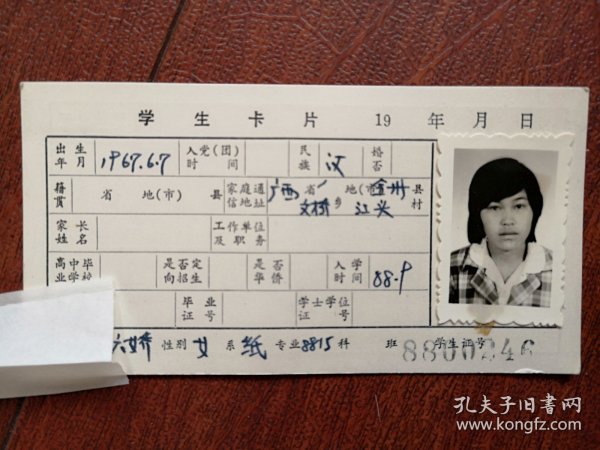 学生卡片 19 年 月 日
出生年月 1967.6.7 入党(团)时间 民族 汉 婚否
籍贯 省 地(市) 县 家庭通信地址 广西 省 地(市) 全州 县 文桥 乡 江头 村
家长姓名 工作单位及职务
高中毕业学校 是否定向招生 是否华侨 入学时间 88.9
毕业证号 学士学位证号
性别 女 系 纸 专业 8815 科 班 学生证号 8800246
孔夫子旧书网
www.kongfz.com